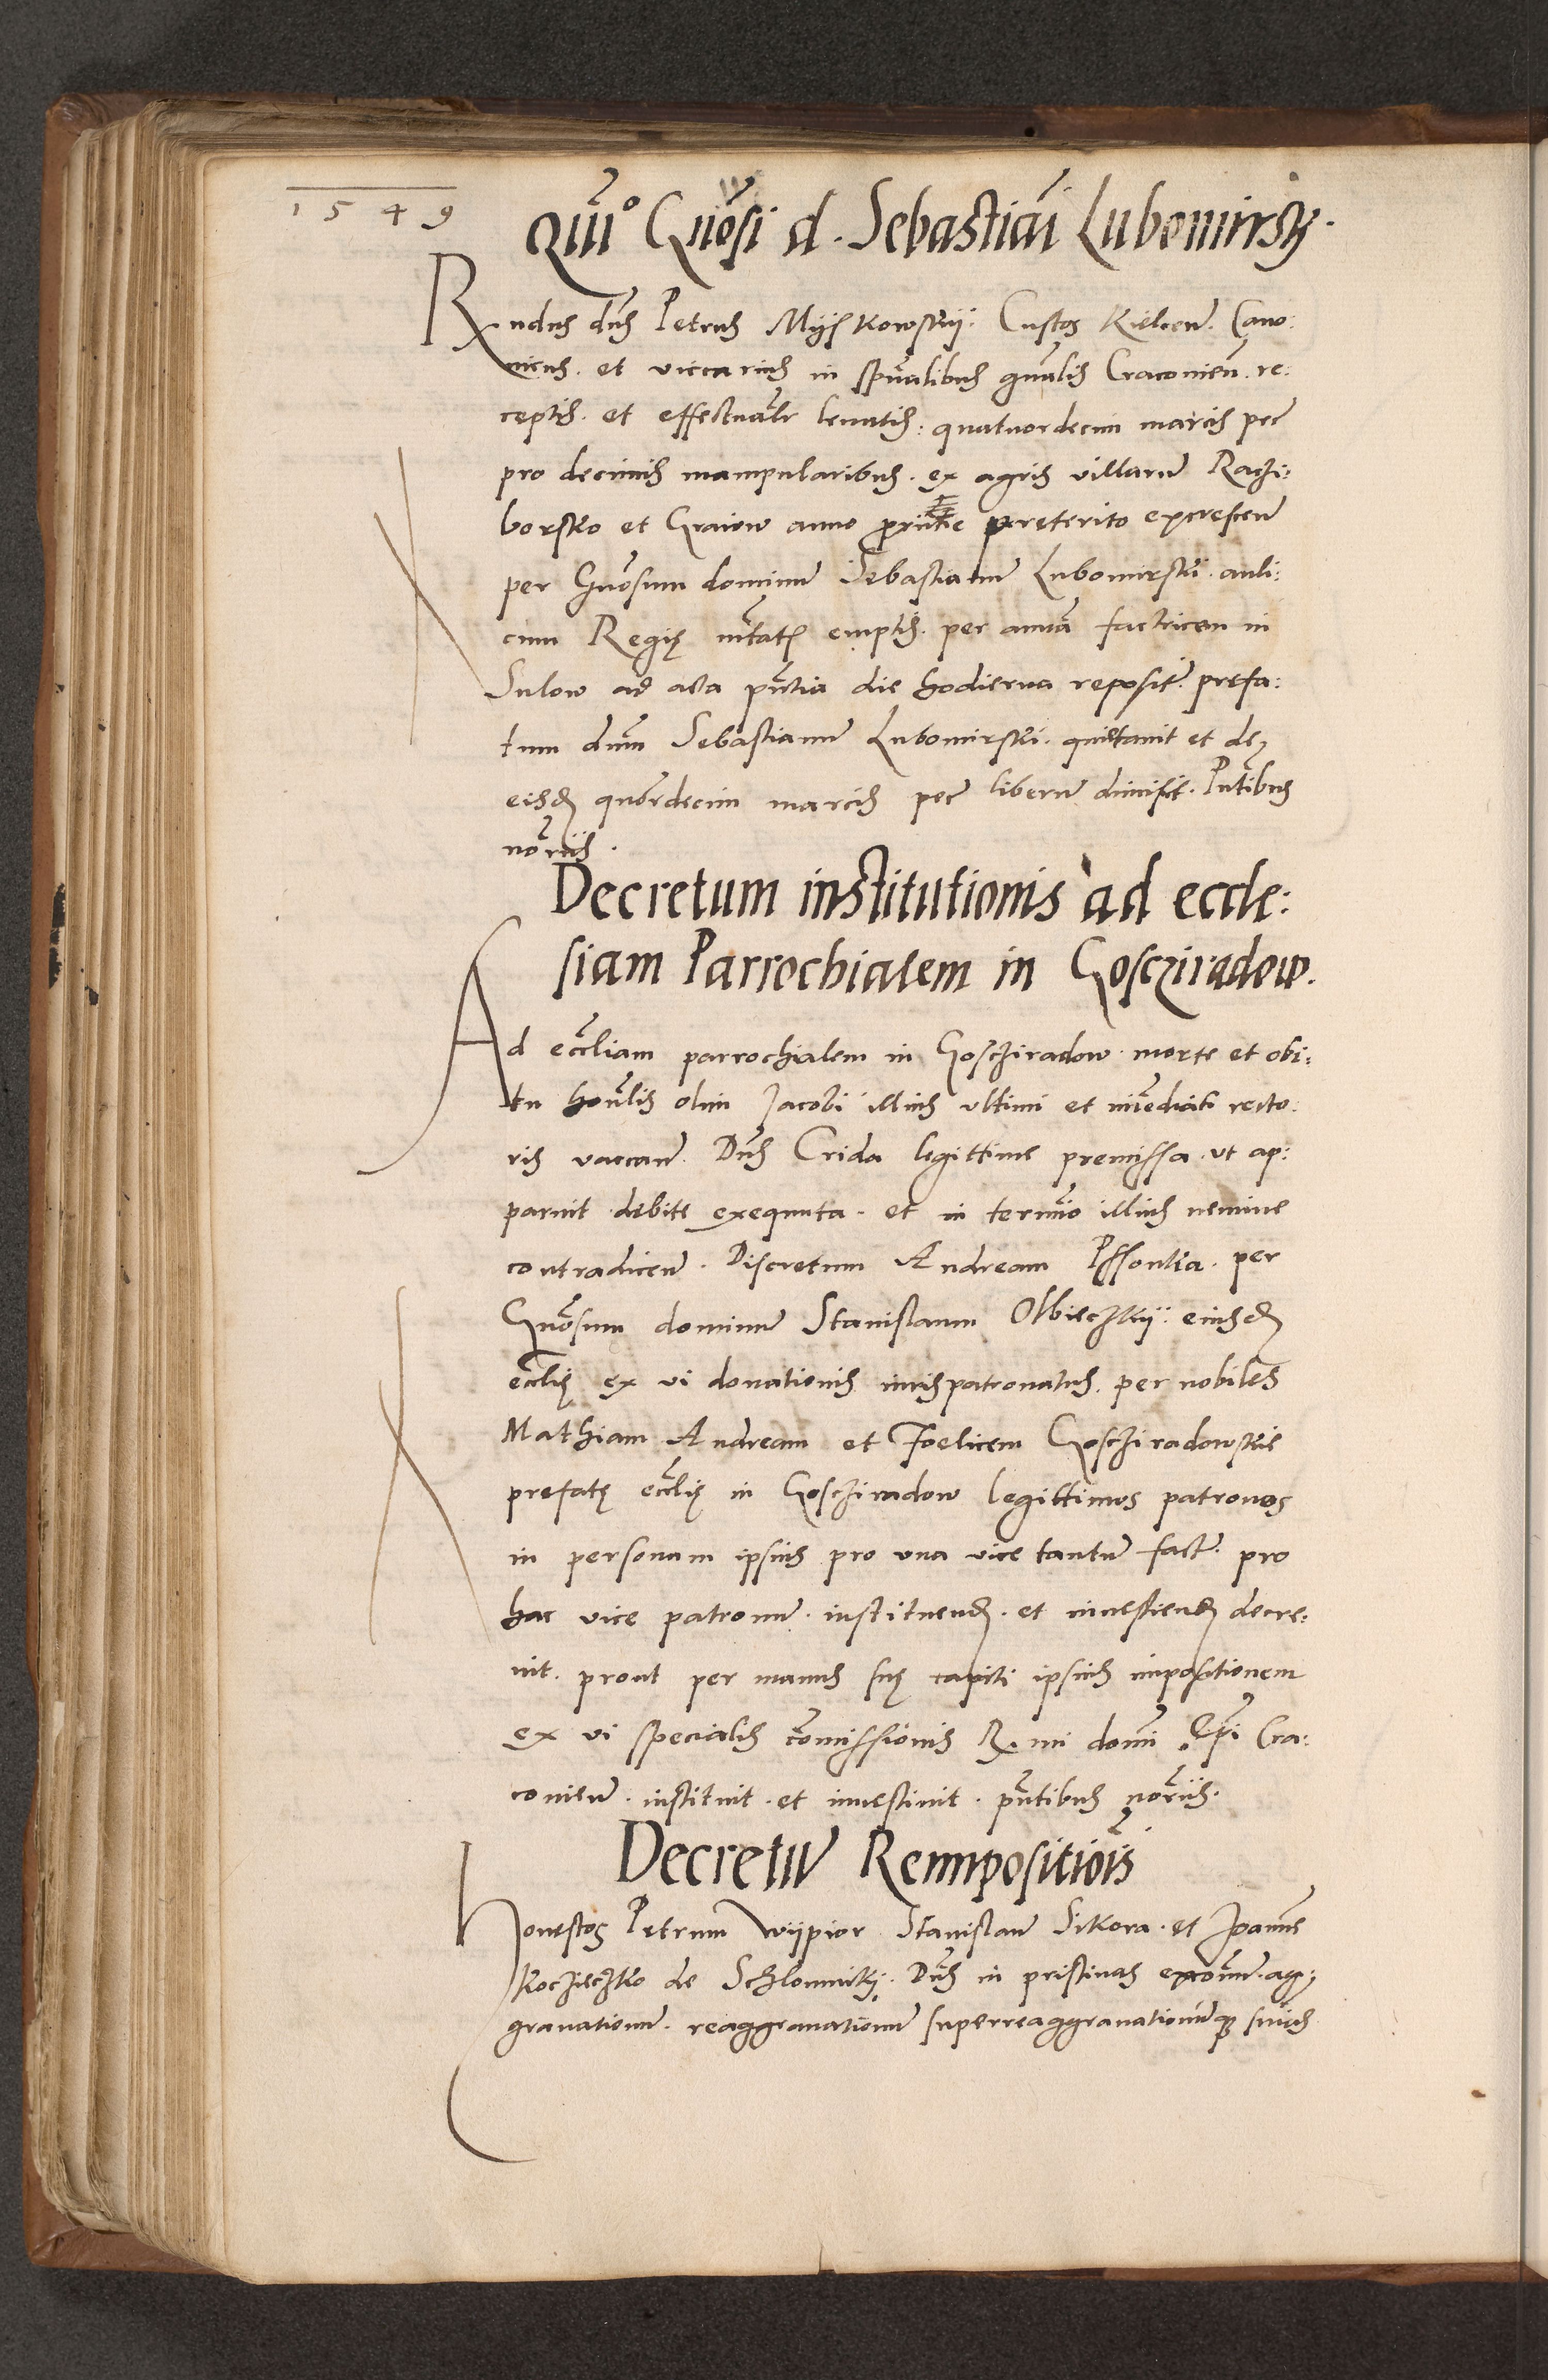 1549
Quit° Gn̄osi d. Sebastiani Lubomirsky.
R. ndus dn̄s Petrus Myſkowskij. Custos Kielcen̄. Cano:
nicus. et viccarius in spūalibus gn̄alis Cracovien̄. re:
ceptis. et effectualr̄ levatis: quatuordecim marcis pec̄
pro decimis manipularibus. ex agris villarum Raczi:
borsko et Graiow anno preterito excrescen̄
per Gn̄osum dominum Sebastianum Lubomirski. auli:
cum Regię mt̄atis emptis. per factricem in
Sulow ad acta pn̄tia die hodierna reposit̄. prefa:
tum dn̄m Sebastianum Lubomirski. quittavit et de
eisdem quatuordecim marcis pec̄ liberum dimisit. Pn̄tibus
notariis.
Decretum institutionis ad eccle:
siam Parrochialem in Gosczradow.
Ad eccl̄iam parrochialem in Goscziradow. morte et obi:
tu hon̄lis olim Jacobi illius ultimi et im̄ediati recto:
ris vaccan̄. Dn̄s Crida legittime premissa. ut ap:
paruit debite exequuta. et in termino illius nemine
contradicen̄. Discretum Andream Pſſonka. per
Gn̄osum dominum Stanislaum Olbieczkij: eiusdem
eccl̄ię ex vi donationis iurispatronatus. per nobiles
Mathiam Andream et Foelicem Gosczradowskie
prefatę eccl̄ię in Gosczradow legittimos patronos
in personam ipsius pro una vice tantum fact̄. pro
hac vice patronum. instituend̄. et investiend̄ decre:
vit. prout per manus suę capiti ipsius impositionem
ex vi specialis com̄issionis R. mi domi Ep̄i Cra:
covien̄. instituit. et investivit. pn̄tibus notariis.
Decretum Reimpositionis
Honestos Petrum Wijpior Stanislaum Sikora. et Joannem
Koczieczko de Schlomniky. Dn̄s in pristinas excōmm. ag:
gravationum. reaggravationum superreaggravationumque sen̄tias